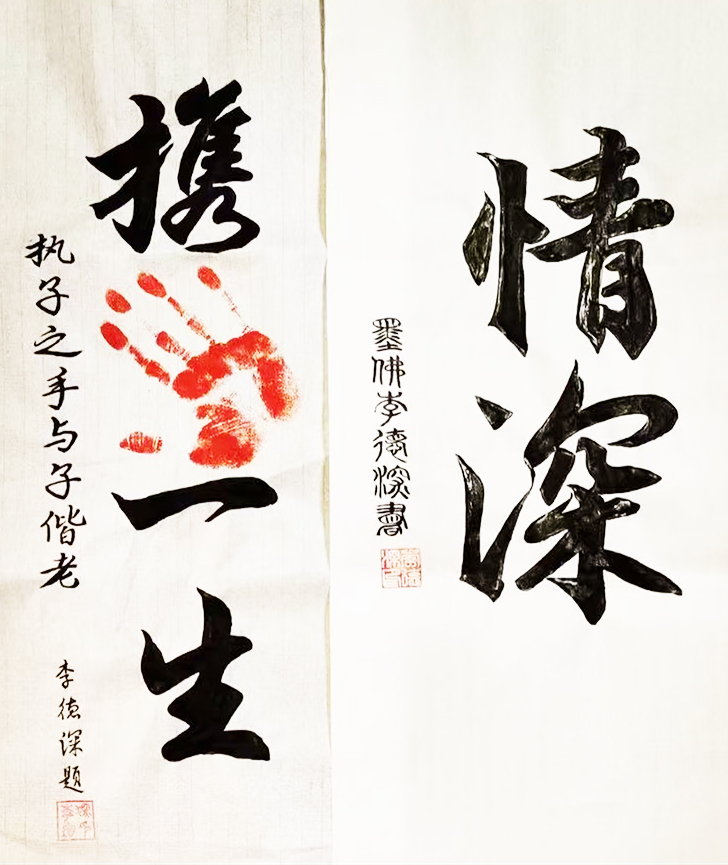 情深
墨佛李德深書
携一生
执子之手与子偕老
李德深题